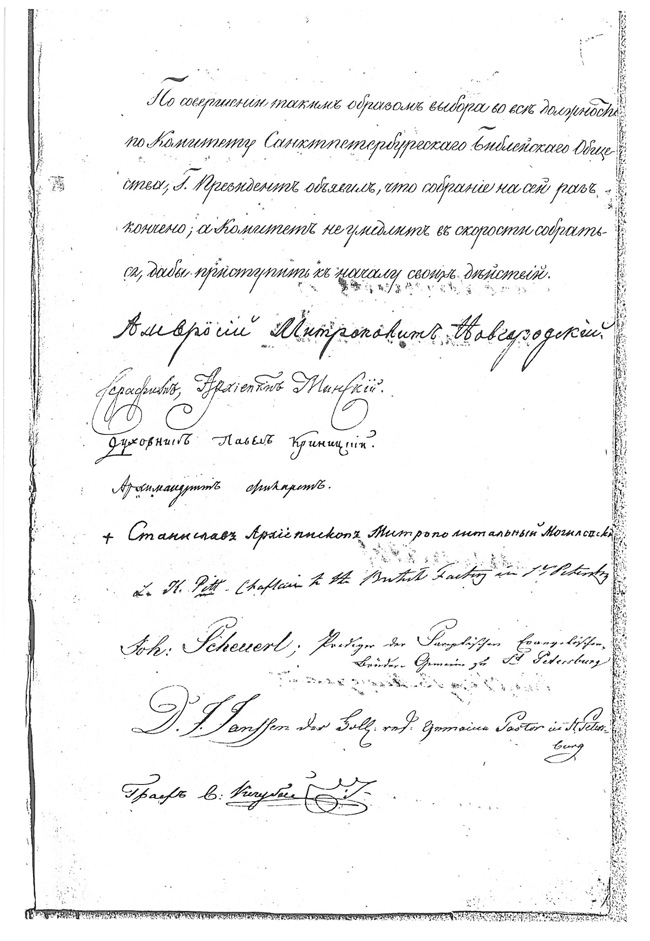 По совершении такимъ образомъ выбора во всѣ должности
по Комитету Санктпетербургскаго Библейскаго Обще-
ства, Г. Президентъ объявилъ, что собраніе на сей разъ
кончено; а Комитетъ не умедлитъ въ скорости собрать-
ся, дабы приступить къ началу своихъ дѣйствій.
Амвросій Митрополитъ Новгородскій.
Серафимъ, Архіепкпъ Минскій.
Духовникъ Павелъ Криницкій.
Архимандритъ Филаретъ.
+ Станиславъ Архіепископъ Митрополитальный Могилевскі
L. K. Pitt - Chaplain to the British Factory in St Petersbg
Joh: Scheuerl; Prediger der Evangelischen
Brüder Gemein zu St Petersburg
D. J. Janssen der Holl. ref. Gemeine Pastor in St. Peters-
burg
Графъ В: Кочубей